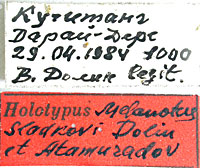 Кугитанг
Дарай-Дере
29.04.1984 1000
В. Долин legit.
Holotypus Melanotus
sladkovi Dolin
et Atamuradov